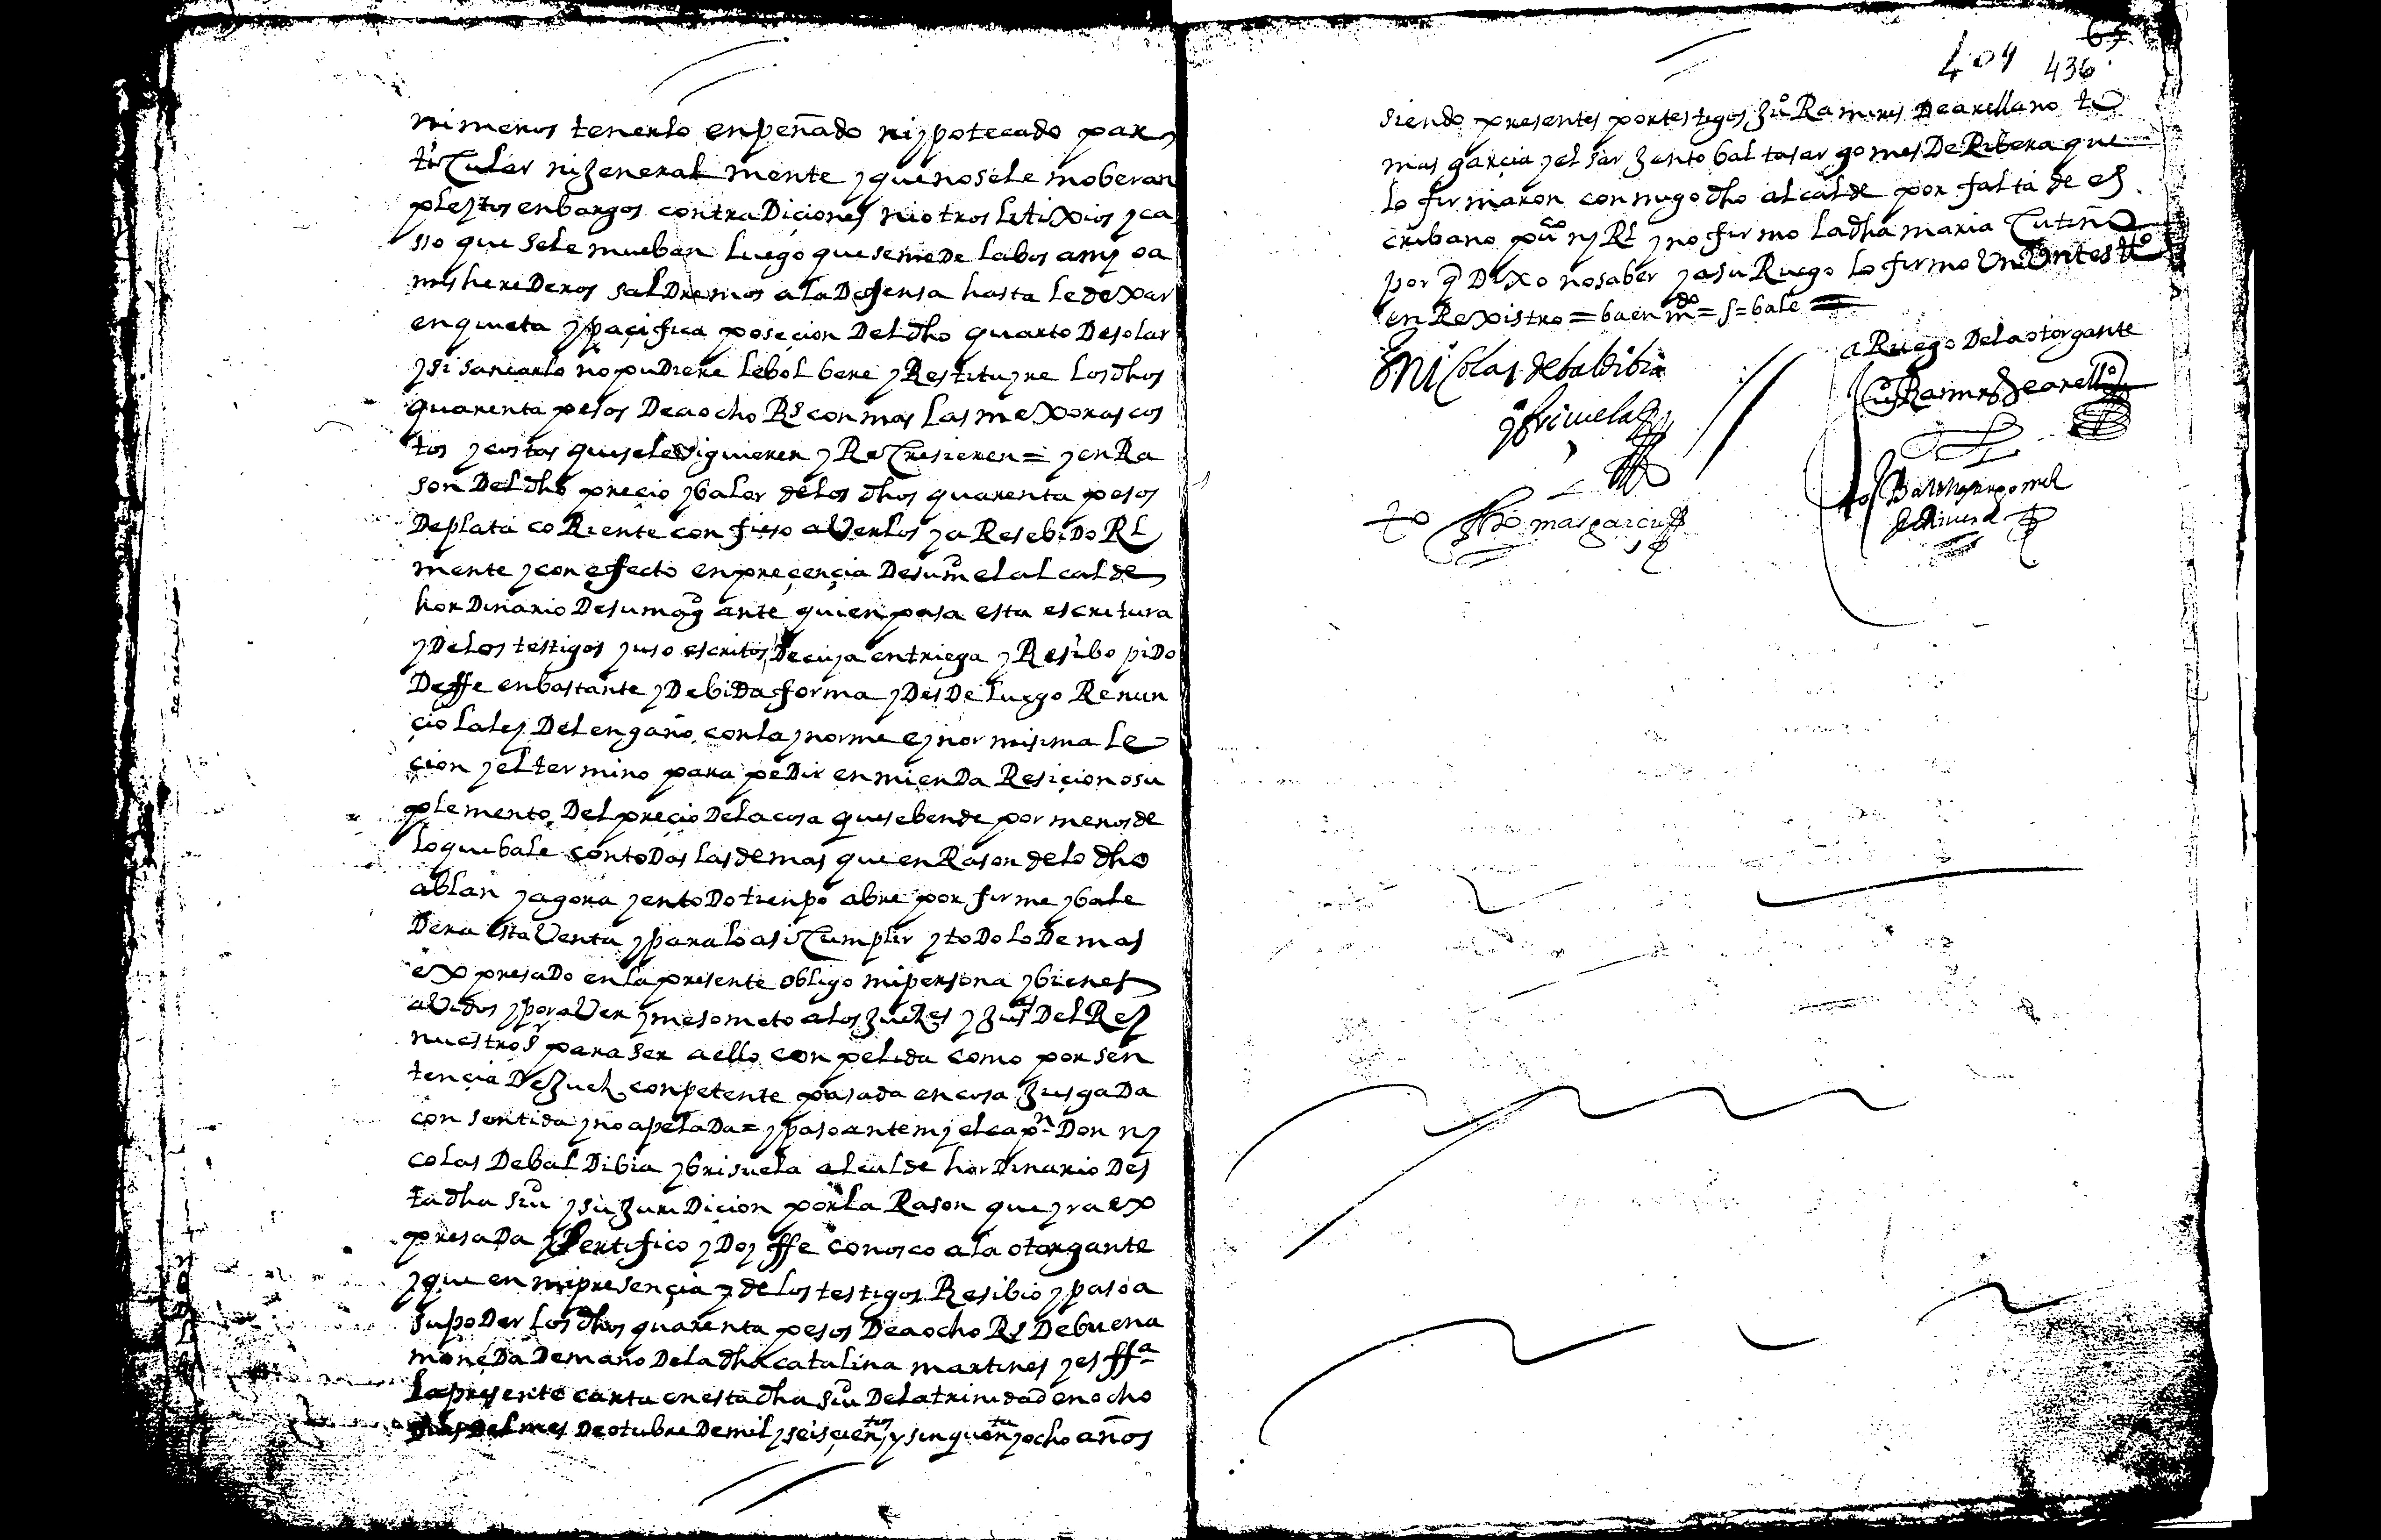 ni menos tenerlo enpeñado ni ypotecado par
ticular ni Jeneral mente y que no se le moberan
pleytos enbargos contradiçiones ni otros litixios y ca
sso que se le mueban luego que se me de labos a my o a
mis herederos saldremos a la defensa hasta le dexar
en quieta y paçifica poseçion del dho quarto de solar
y si sanearlo no pudiere le bolbere y Restituyre los dhos
quarenta pesos de a ocho Rs con mas las mexoras cos
tos y costas que se le siguieren y Recresieren = y en Ra
son del dho preçio y balor de los dhos quarenta pesos
de plata coRiente confieso averlos ya Resebido Rl
mente y con efecto en preçençia de su md el alcalde
hordinario de su magd ante quien pasa esta escritura
y de los testigos yuso escritos de cuya entriega y Resibo pido
de ffe en bastante y debida forma y desde luego Renun
çio la ley del engaño con la ynorme e ynormisima le
çion y el termino para pedir enmienda Resiçion o su
plemento del preçio de la cosa que se bende por menos de
lo que bale con todas las demas que en Rason de lo dho
ablan y agora y en todo tienpo abre por firme y bale
dera esta venta y para lo asi cumplir y todo lo demas
expresado en la presente obligo mi persona y bienes
avidos y por aver y me someto a los Jueses y Jusas del Rey
nuestro sr para ser a ello conpelida como por sen
tençia de Jues conpetente pasada en cosa Jusgada
consentida y no apelada = y paso ante my el capn Don ny
colas de baldibia y brisuela alcalde hordinario des
ta dha siu y su Juridicion por la Rason que yra ex
presada y sertifico y doy ffe conosco a la otorgante
y que en mi presençia y de los testigos Resibio y paso a
su poder los dhos quarenta pesos de a ocho Rs de buena
moneda de mano de la dha catalina martines y es ffa
la presente carta en esta dha siu de la trinidad en ocho
dias del mes de otubre de mil y seisçientos y sinquenta y ocho años
65
409 436
siendo presentes por testigos Juo Ramires de arellano to
mas garçia y el sarJento baltasar gomes de Ribera que
lo firmaron conmigo dho alcalde por falta de es
cribano puco ny Rl y no firmo la dha maria Cutiño
por q dixo no saber y a su Ruego lo firmo un testo
en Rexistro = ba en mdo = s = bale =
Nicolas de baldibia
y briçuela
a Ruego de la otorgante
Juo Ramires de arello
to Thomas garcia
to Balthasar gomes
de Rivera